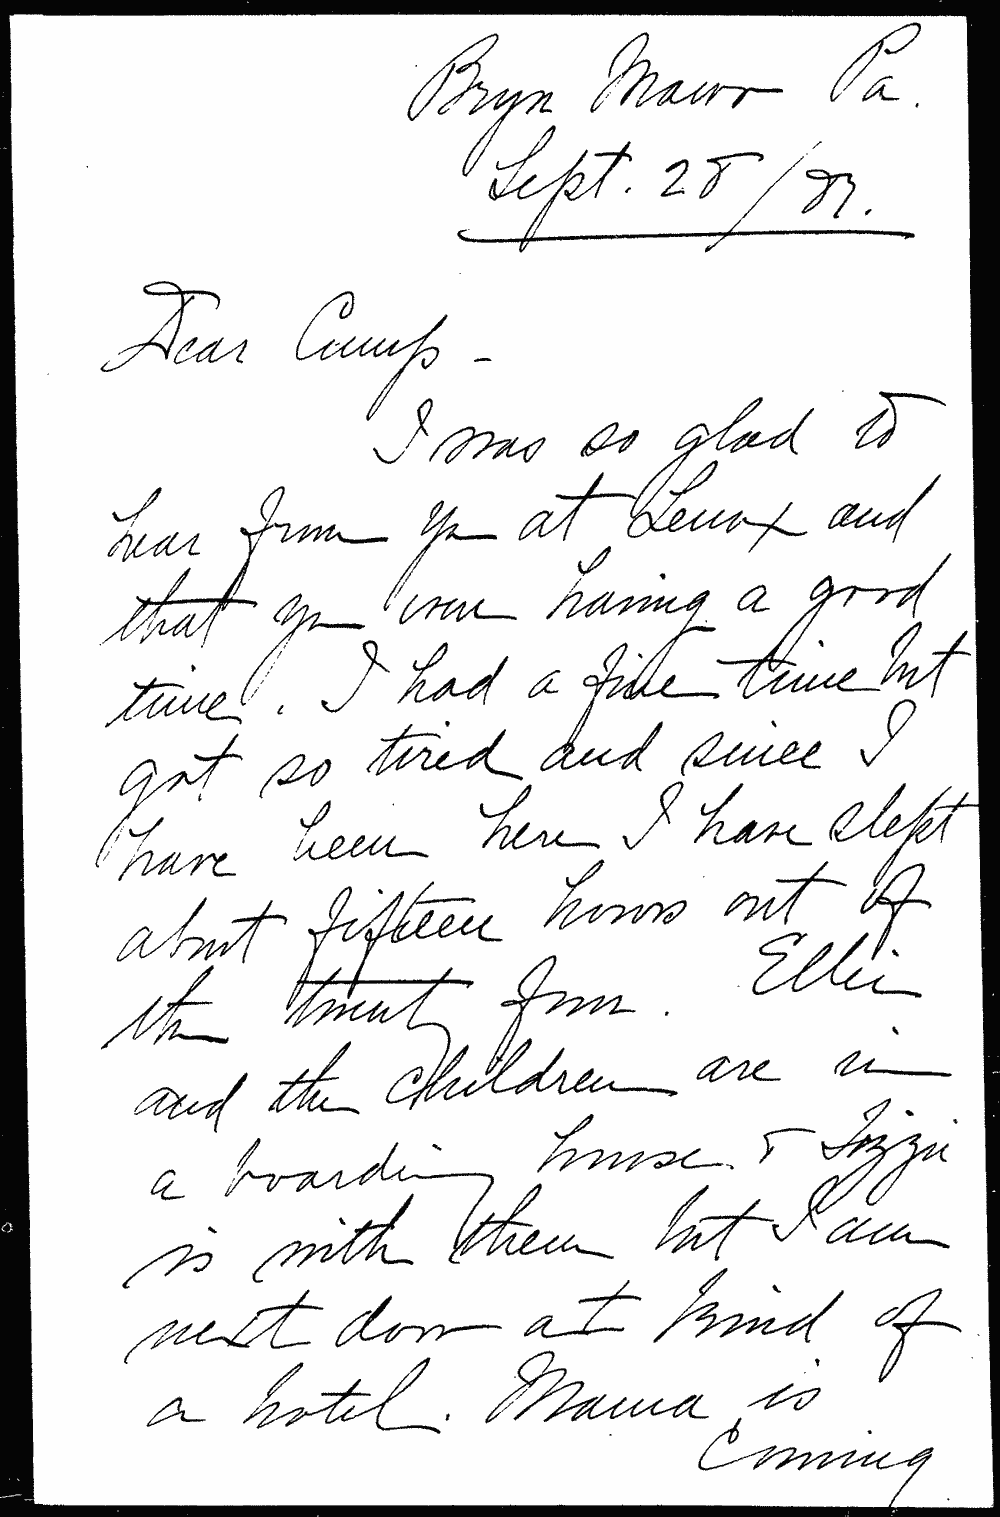 Bryn Mawr Pa.
Sept. 28/87.
Dear Cump -
I was so glad to
hear from you at Lenox and
that you were having a good
time. I had a fine time but
got so tired and since I
have been here I have slept
about fifteen hours out of
the twenty four. Ellie
and the children are in
a boarding house & Lizzie
is with them but I am
next door at kind of
a hotel. Mama is
coming